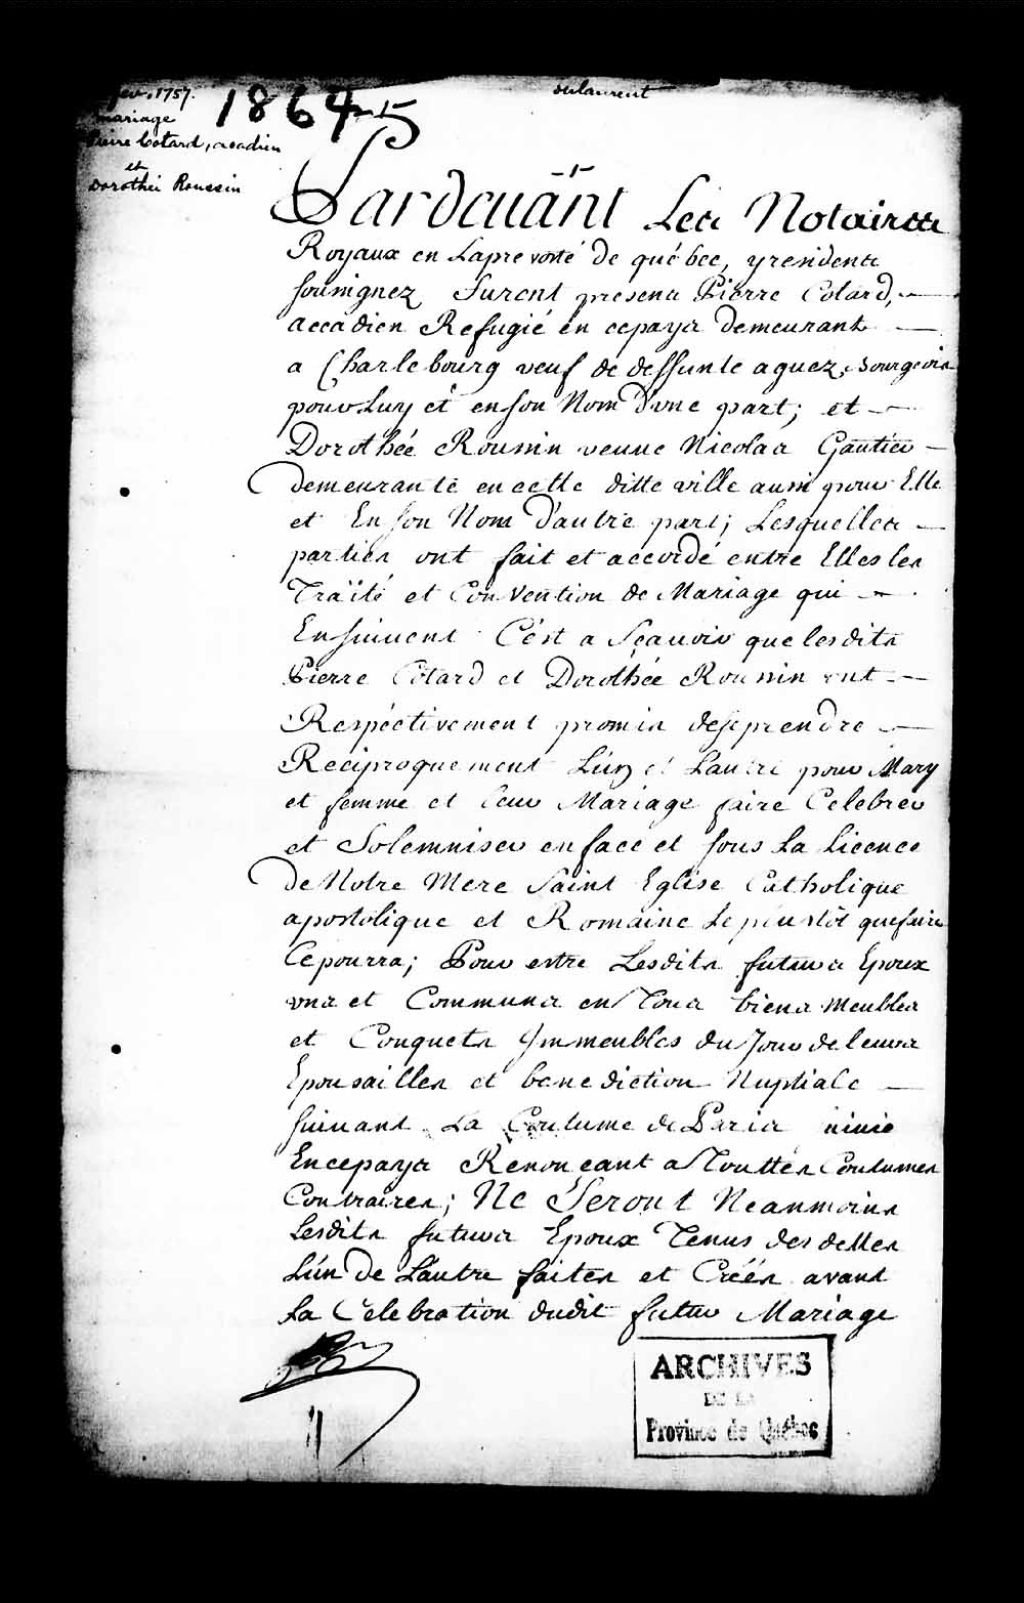 fev. 1757.
mariage
Pierre Cotard, acadien
et
Dorothée Roussin
1864-15
dulaurent
Pardeuant Les Notaires
Royaux en Laprevosté de québec, y residents
soussignez furent presens Pierre Cotard,
accadien Refugié en cepays demeurant
a Charlebourg veuf de deffunte agnez Bourgeois
pour Luy et en son Nom d'vne part; et
Dorothée Roussin veuue Nicolas Gautier
demeurante en cette ditte ville aussi pour Elle
et En son Nom d'autre part; Lesquelles
parties ont fait et accordé entre Elles les
Traité et Convention de Mariage qui
Ensuiuent C'est a Sçauoir que lesdits
Pierre Cotard et Dorothée Roussin ont
Respéctivement promis deseprendre
Reciproquement L'un et Lautre pour Mary
et femme et leur Mariage faire Celebrer
et Solemniser en face et sous La Licence
de Notre Mere Saint Eglise Catholique
apostolique et Romaine Le plustôt quefaire
Cepourra; Pour estre Lesdits futurs Epoux
vns et Communs en Tous biens Meubles
et Conquets Immeubles du Jour de leurs
Epousailles et benediction Nuptiale
suiuant La Coutume de Paris suivie
Encepays Renonçant a Touttes Coutumes
Contraires; Ne Seront Neanmoins
Lesdits futurs Epoux Tenus des dettes
L'ún de Láutre faites et Créés avant
La Celebration dudit futur Mariage
ARCHIVES
DE LA
Province de Québec